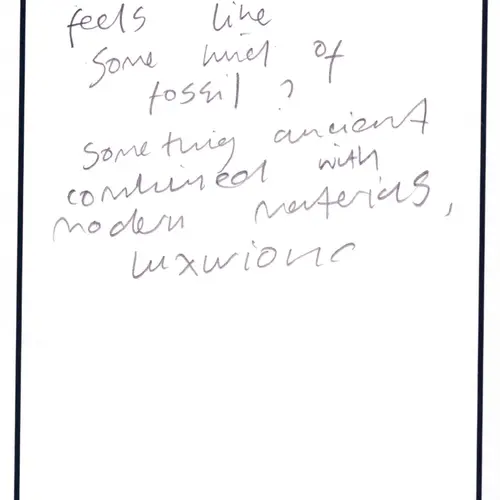 feels like
some kind of
fossil?
something ancient
combined with
modern materials,
luxurious